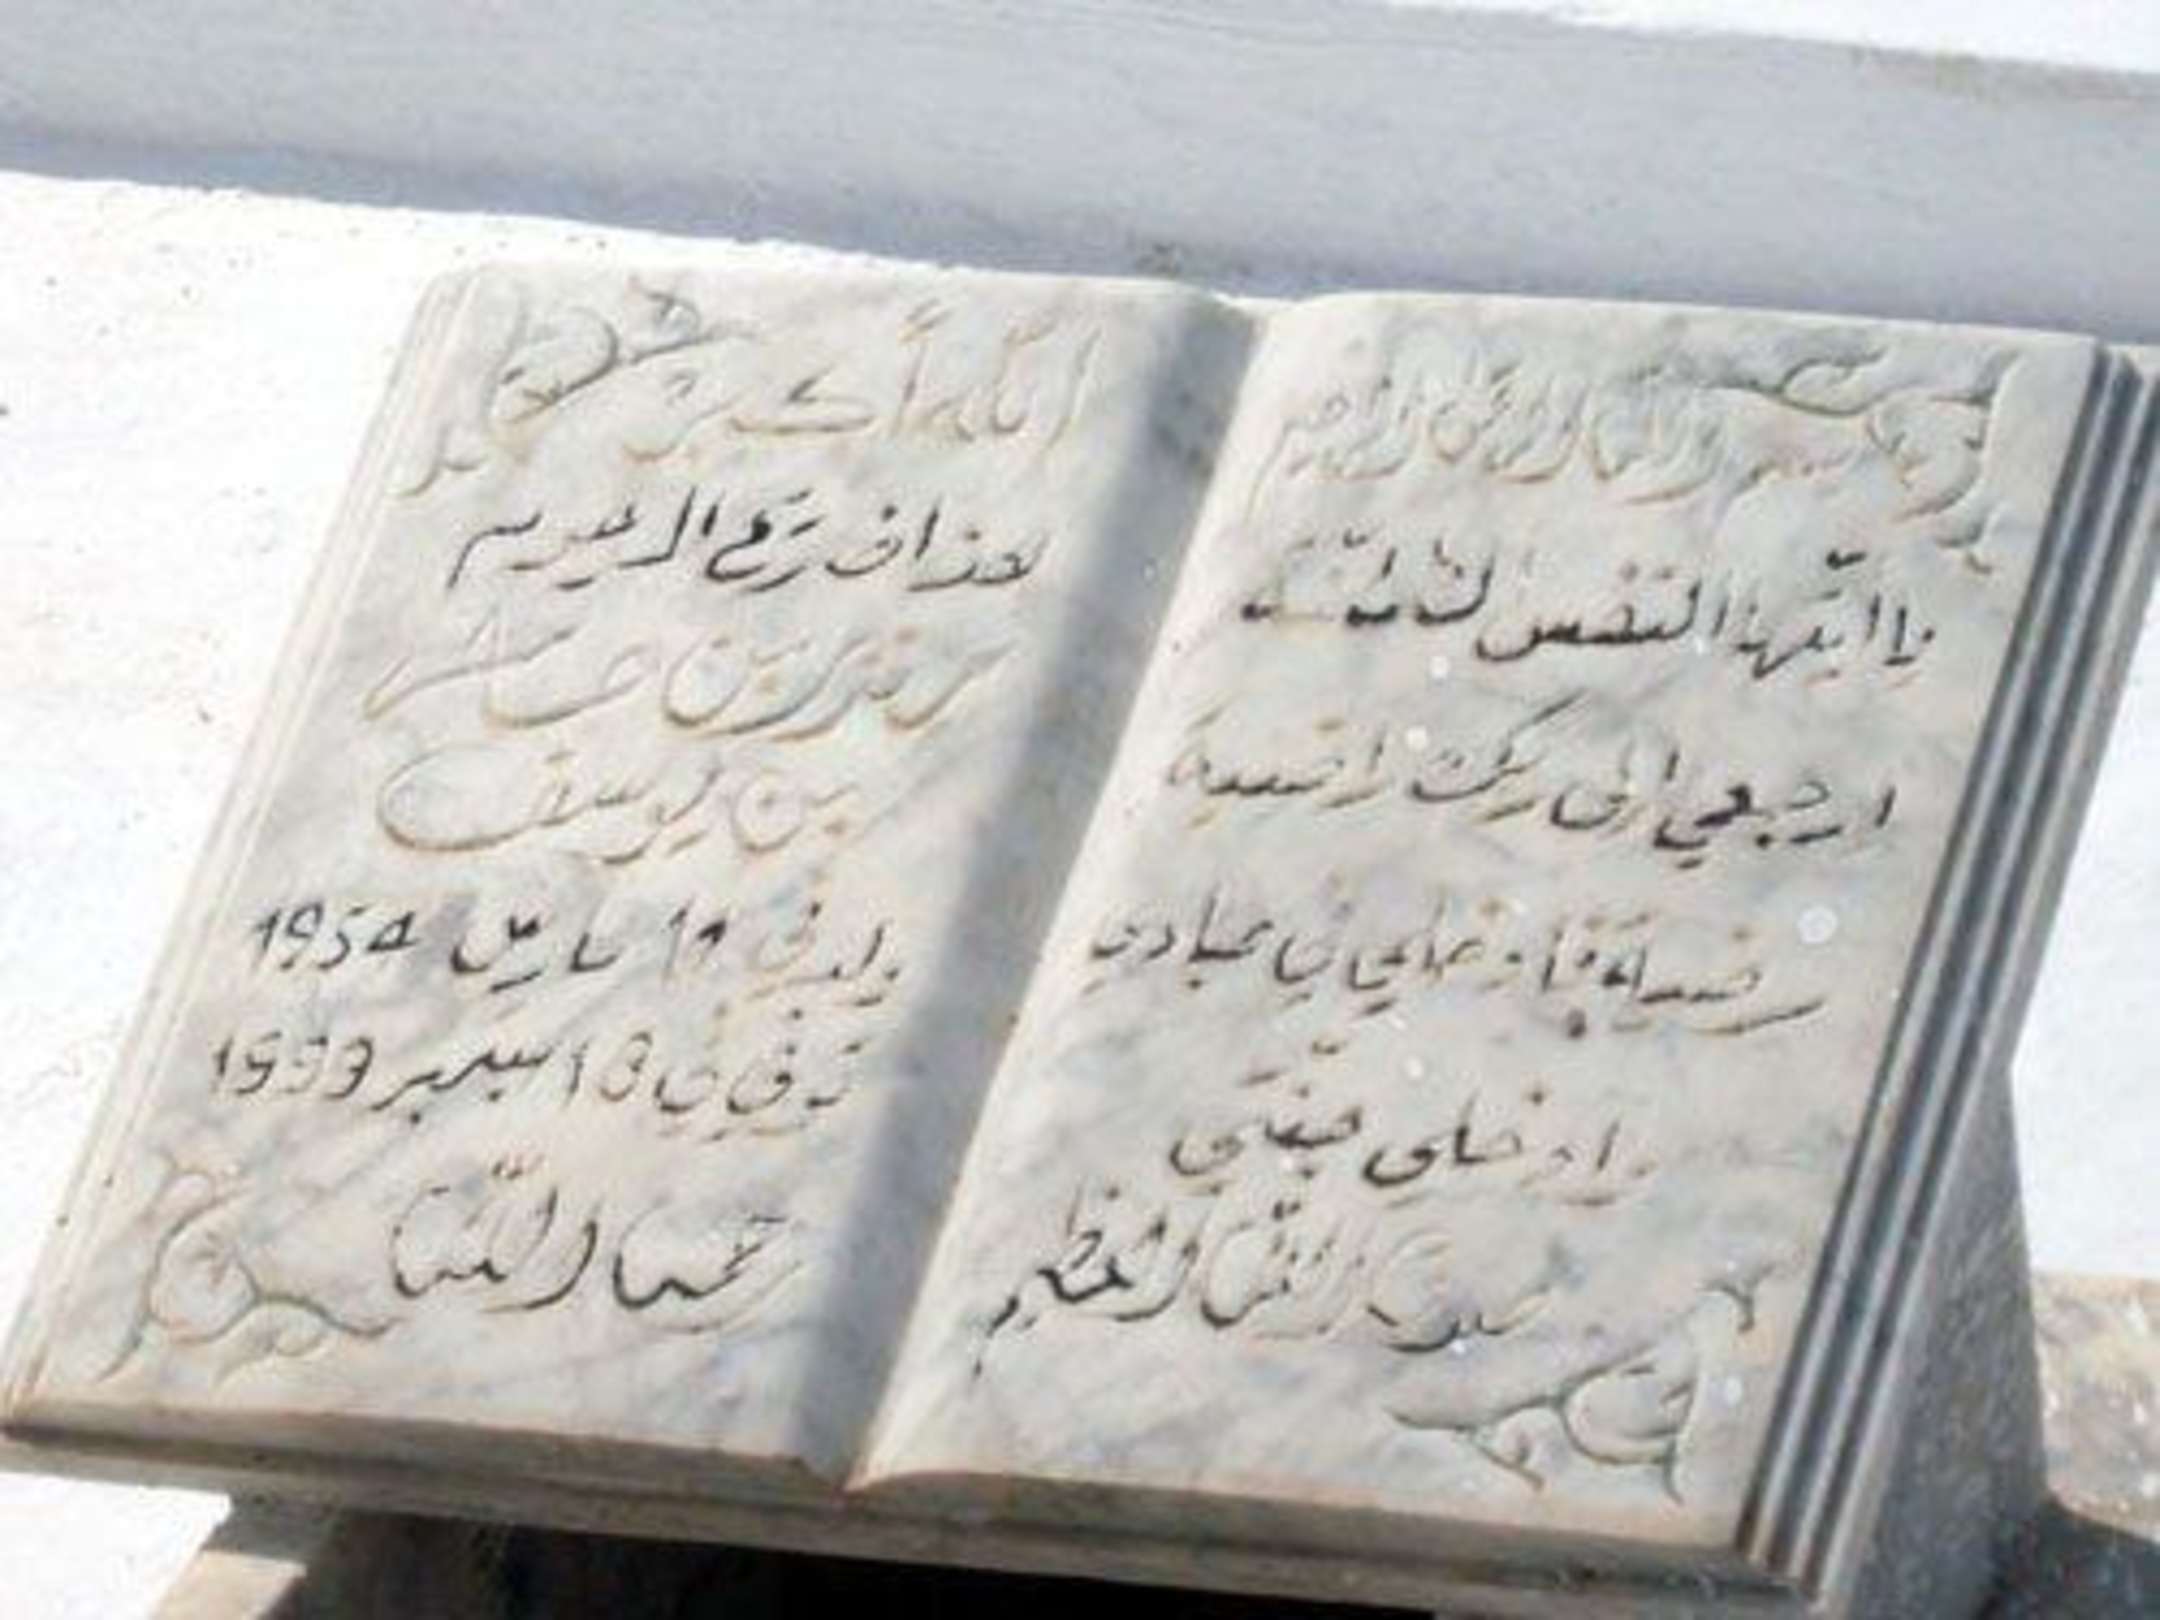 بسم الله الرحمن الرحيم
يا ايتها النفس المطمئنة
ارجعي الى ربك راضية
مرضية فادخلي في عبادي
وادخلي جنتي
صدق الله العظيم
الله أكبر
هذا ضريح المرحوم
بن صالح
بن يوسف
ولد في 11 مارس 1954
توفي في سبتمبر
رحمه الله